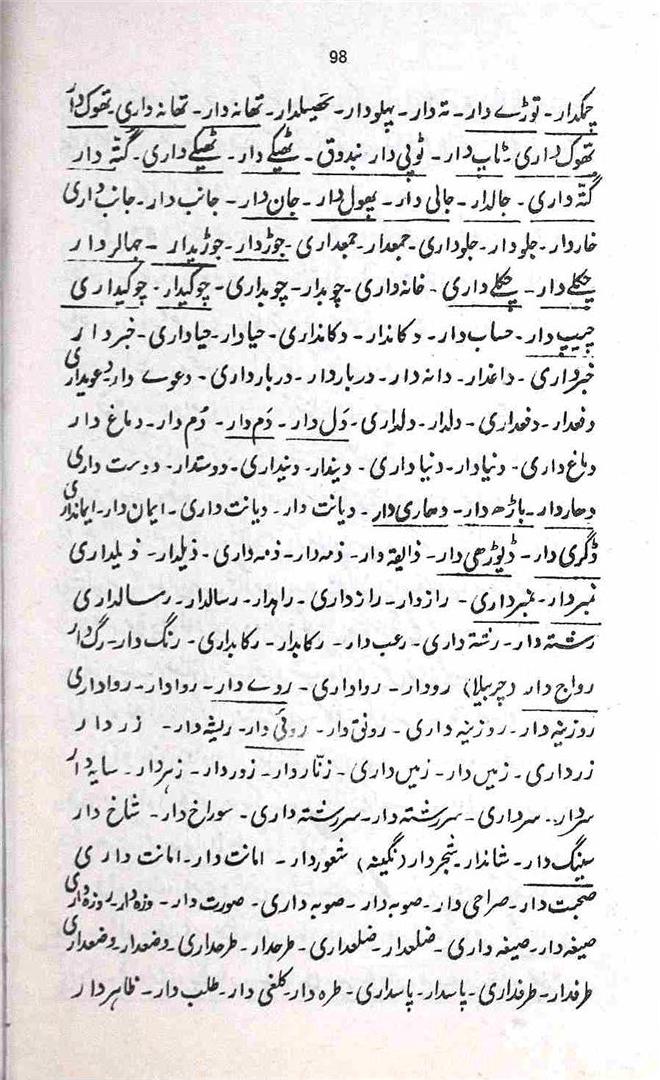 98
چمکدار۔ توڑے دار۔ تہ دار۔ پہلودار۔ تحصیلدار۔ تھانہ دار۔ تھانہ داری۔ تھوک دار
تھوک داری۔ ٹاپ دار۔ ٹوپی دار بندوق۔ ٹھیکے دار۔ ٹھیکے داری۔ گتہ دار
گتہ داری۔ جالدار۔ جالی دار۔ پھول دار۔ جان دار۔ جانب دار۔ جانب داری
خاردار۔ جلودار۔ جلوداری۔ جمعدار۔ جمعداری۔ جوڑدار۔ جوڑیدار۔ جھالردار
چکلے دار۔ چکلے داری۔ خانہ داری۔ چوبدار۔ چوبداری۔ چوکیدار۔ چوکیداری
چیپ دار۔ حساب دار۔ دکاندار۔ دکانداری۔ حیادار۔ حیاداری۔ خبردار
خبرداری۔ داغدار۔ دانہ دار۔ درباردار۔ دربارداری۔ دعوے دار۔ دعویداری
دفعدار۔ دفعداری۔ دلدار۔ دلداری۔ دَل دار۔ دَم دار۔ دُم دار۔ دماغ دار
دماغ داری۔ دنیادار۔ دنیاداری۔ دیندار۔ دینداری۔ دوستدار۔ دوست داری
دھاردار۔ باڑھ دار۔ دھاری دار۔ دیانت دار۔ دیانت داری۔ ایمان دار۔ ایمانداری
ڈگری دار۔ ڈیوڑھی دار۔ ذائقہ دار۔ ذمہ دار۔ ذمہ داری۔ ذیلدار۔ ذیلداری
نمبردار۔ نمبرداری۔ رازدار۔ رازداری۔ راہدار۔ رسالدار۔ رسالداری
رشتہ دار۔ رشتہ داری۔ رعب دار۔ رکابدار۔ رکابداری۔ رنگ دار۔ رگ دار
رواج دار (چربیلا) رودار۔ رواداری۔ روے دار۔ روادار۔ رواداری
روزینہ دار۔ روزینہ داری۔ رونق دار۔ روئی دار۔ ریشہ دار۔ زردار
زرداری۔ زمیں دار۔ زمیں داری۔ زنّاردار۔ زوردار۔ زہردار۔ سایہ دار
سردار۔ سرداری۔ سررشتہ دار۔ سررشتہ داری۔ سوراخ دار۔ شاخ دار
سینگ دار۔ شاندار۔ شجردار (نگینہ) شعوردار۔ امانت دار۔ امانت داری
صحبت دار۔ صراحی دار۔ صوبہ دار۔ صوبہ داری۔ صورت دار۔ روزہ داری
صیغہ دار۔ صیغہ داری۔ ضلعدار۔ ضلعداری۔ طرحدار۔ طرحداری۔ وضعدار۔ وضعداری
طرفدار۔ طرفداری۔ پاسدار۔ پاسداری۔ طرہ دار۔ کلغی دار۔ طلب دار۔ ظاہردار